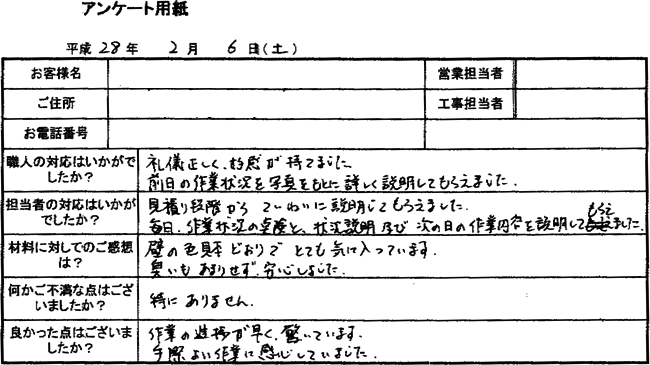 アンケート用紙
平成 28 年 2 月 6 日(土)
お客様名 営業担当者
ご住所 工事担当者
お電話番号
職人の対応はいかがで
したか?
礼儀正しく、好感が持てました
前日の作業状況を写真をもとに詳しく説明してもらえました.
担当者の対応はいかが
でしたか?
見積り段階から ていねいに説明してもらえました.
毎日、作業状況の写真と、状況説明及び 次の日の作業内容を説明してもらえました.
材料に対してのご感想
は?
壁の色見本どおりで とても気に入っています.
臭いもあまりせず、安心しました.
何かご不満な点はござ
いましたか?
特にありません.
良かった点はございま
したか?
作業の進捗が早く、驚いています.
手際よい作業に感心していました.